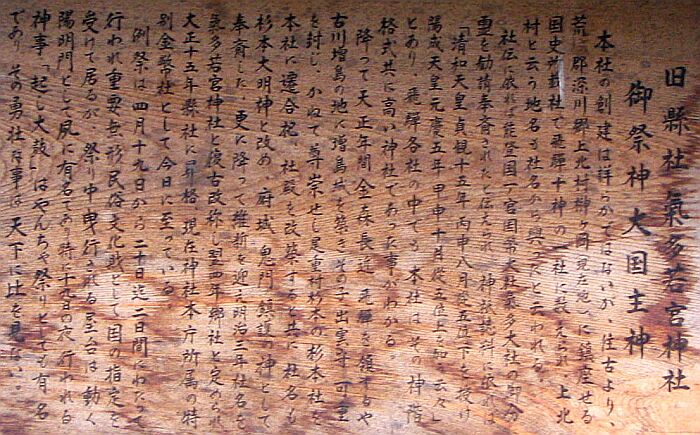 旧縣社 氣多若宮神社
御祭神 大国主神
本社の創建は詳らかではないが、往古より、
荒城郡深川郷上北村神ヶ岡(現在地)に鎮座せる
国史所載社で飛驒十神の一社に数えられ、上北
村と云う地名も社名から興ったと云われる。
社伝に依れば能登国一宮国幣大社氣多大社の御分
霊を勧請奉斎されたと伝えられ、神祇読料に依れば
「清和天皇貞観十五年丙申八月従五位下を授け
陽成天皇元慶五年甲申十月従五位上を加 云々し
とあり、飛驒各社の中でも 本社は その神階
格式共に高い神社であった事がわかる。
降って天正年間金森長近 飛驒を領するや
古川増島の地に増島城を築き、その子出雲守可重
を封し、かねて尊崇せし是重村杉本の杉本社を
本社に遷合祀、社殿を改築すると共に社名も
杉本大明神と改め、府城 鬼門 鎮護の神として
奉斎した。更に降って維新を迎え明治三年社名を
氣多若宮神社と復古改称し翌四年郷社と定められ
大正十五年縣社に昇格、現在神社本庁所属の特
別金幣社として今日に至っている。
例祭は四月十九日から二十日迄二日間にわたって
行われ重要無形民俗文化戝として国の指定を
受けて居るが 祭り中曳行される屋台は 動く
陽明門として夙に有名であり特に十九日の夜行われる
神事、「起し太鼓」はやんちゃ祭りとしても有名
であり その勇壮な事は 天下に比を見ない。